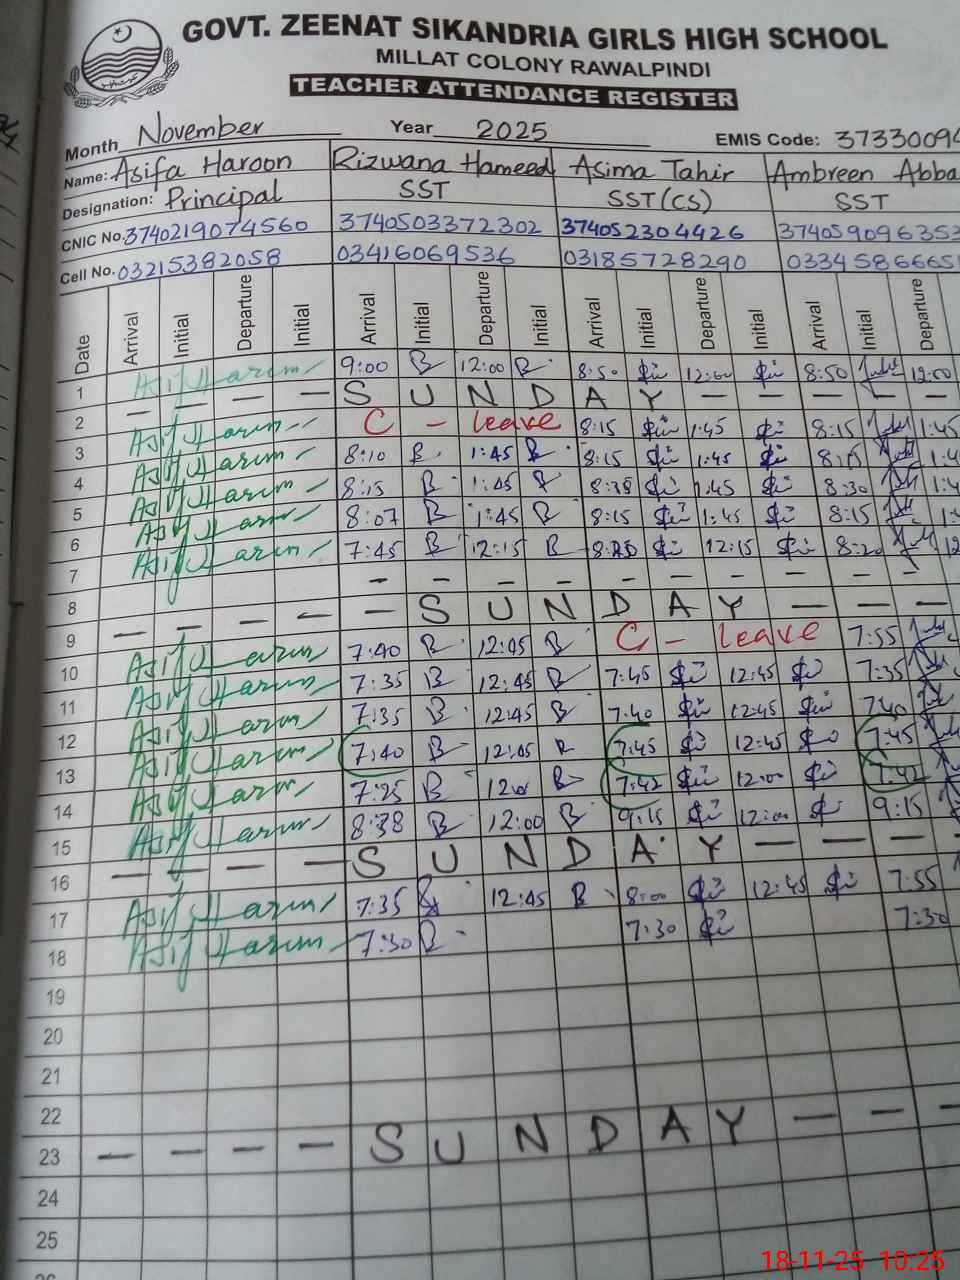 GOVT. ZEENAT SIKANDRIA GIRLS HIGH SCHOOL
MILLAT COLONY RAWALPINDI
TEACHER ATTENDANCE REGISTER
Month November Year 2025 EMIS Code: 37330094
Name: Asifa Haroon Rizwana Hameed Asima Tahir Ambreen Abba
Designation: Principal SST SST(CS) SST
CNIC No. 3740219074560 3740503372302 374052304426 374059096353
Cell No. 03215382058 03416069536 03185728290 0334586665
Date Arrival Initial Departure Initial Arrival Initial Departure Initial Arrival Initial Departure Initial Arrival Initial Departure
1 9:00 B 12:00 B 8:50 12:00 8:50 12:00
2 — — — — S U N D A Y — — — —
3 C - leave 8:15 1:45 8:15 1:45
4 8:10 B 1:45 B 8:15 1:45 8:15 1:4
5 8:15 B 1:45 B 1:45 8:30 1:4
6 8:07 B 1:45 B 8:15 1:45 8:15 1:
7 7:45 B 12:15 B 12:15 8:20 12
8 - - - - - - - - - -
9 — — — — — S U N D A Y — — —
10 7:40 B 12:45 B C - leave 7:55
11 7:35 B 12:45 B 7:45 12:45 7:35
12 7:35 B 12:45 B 7:40 12:45 7:40
13 7:40 B 12:45 B 7:45 12:45 7:45
14 7:25 B 1200 B 7:42 12:00 7:42
15 8:38 B 12:00 B 9:15 12:00 9:15
16 — — — — S U N D A Y — — — —
17 7:35 B 12:45 B 8:00 12:45 7:55
18 7:30 B 7:30 7:30
19
20
21
22
23 — — — — S U N D A Y — — —
24
25
18-11-25 10:25